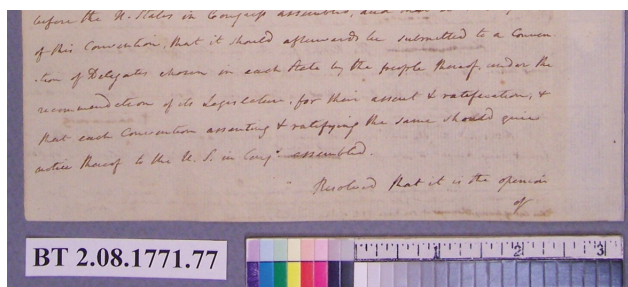 before the U. States in Congress assembled, and
of this Convention, that it should afterwards be submitted to a Conven
tion of Delegates chosen in each State by the people thereof, under the
recommendation of its Legislature, for their assent & ratification, &
that each Convention assenting & ratifying the same should give
notice thereof to the U. S. in Cong.s assembled.
Resolved that it is the opinion
of
BT 2.08.1771.77
1 2 3